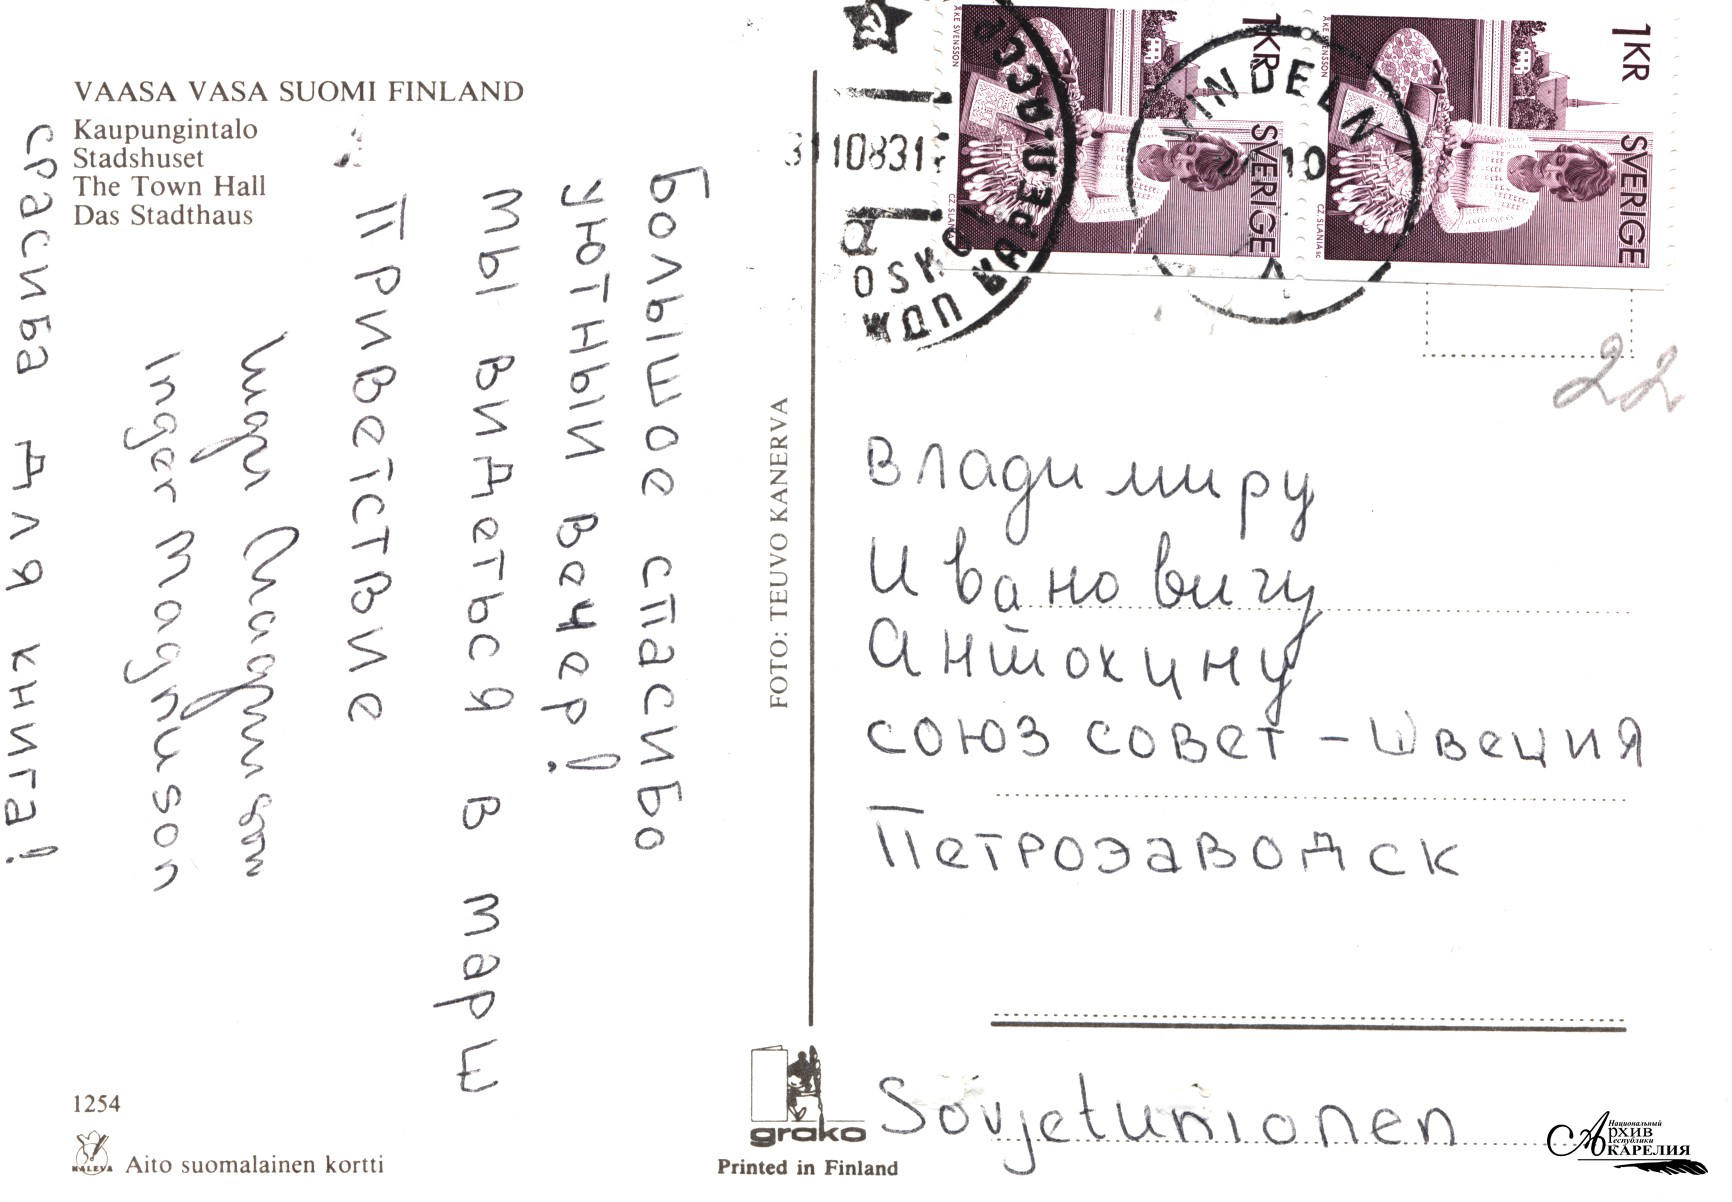 VAASA VASA SUOMI FINLAND
Kaupungintalo
Stadshuset
The Town Hall
Das Stadthaus
Большое спасибо
уютный вечер!
мы видеться в марш
Приветствие
Inger Magnuson
срасиба для книга!
FOTO: TEUVO KANERVA
1254
KALEVA
Aito suomalainen kortti
grako
Printed in Finland
1KR
SVERIGE
ÅKE SVENSSON
CZ. SLANIA SC
1KR
SVERIGE
ÅKE SVENSSON
VINDELN
10
22
Владимиру
Ивановичу
Антохину
союз совет - Швеция
Петрозаводск
Sovjetunionen
Национальный
Архив
Республики
Карелия